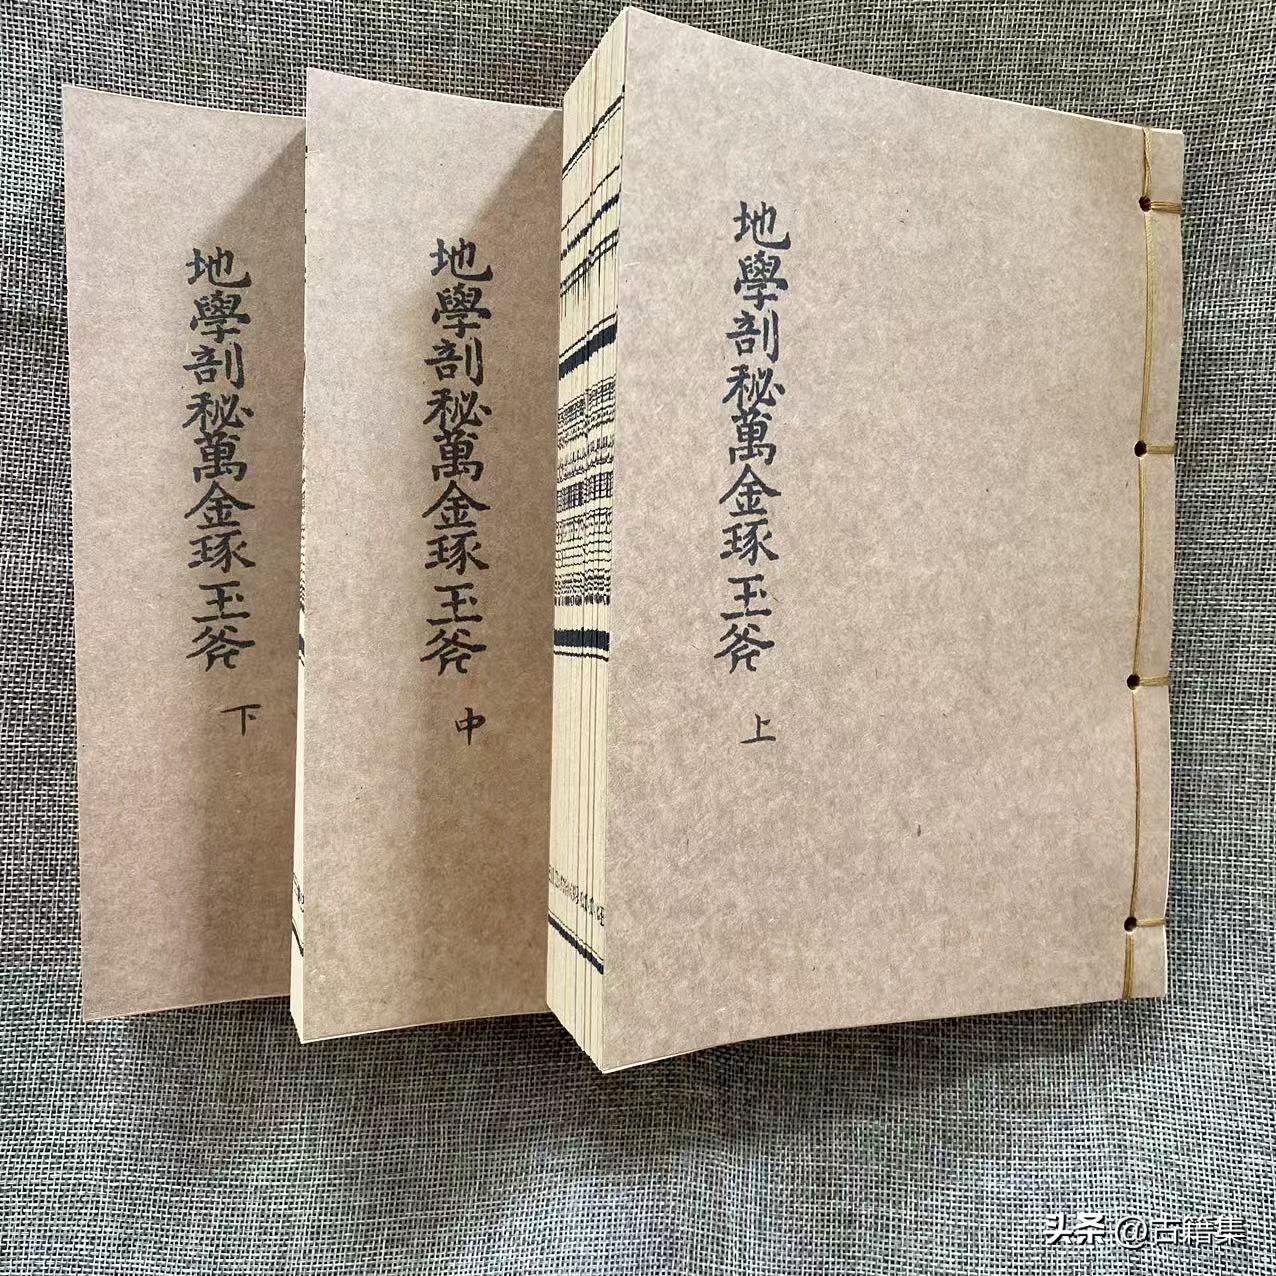 地學剖秘萬金琢玉斧
上
地學剖秘萬金琢玉斧
中
地學剖秘萬金琢玉斧
下
头条 @古籍集